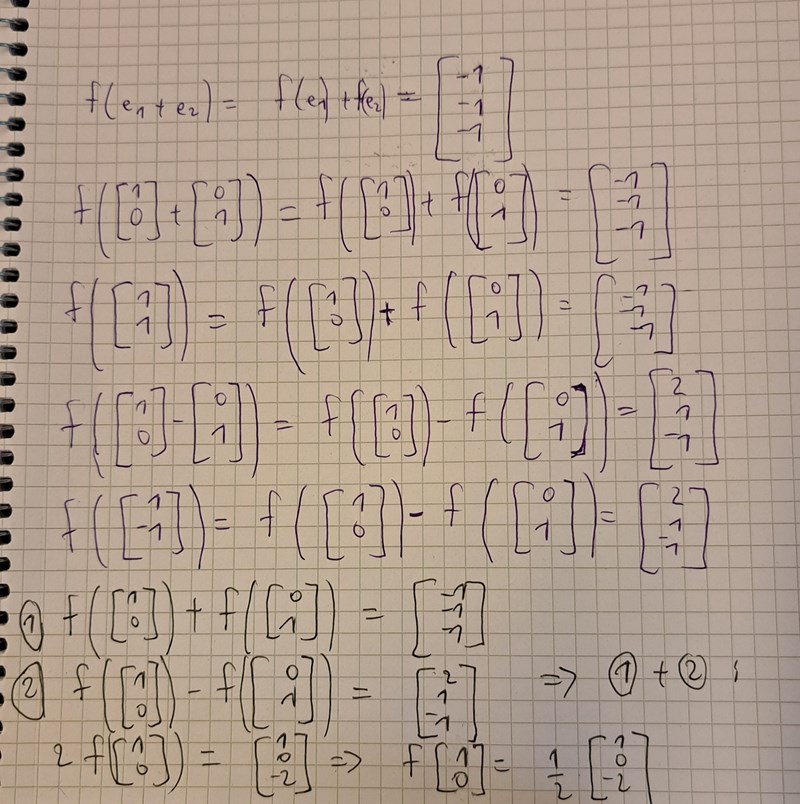 f(e₁ + e₂) = f(e₁) + f(e₂) = [-1; -1; -1]
f([1; 0] + [0; 1]) = f([1; 0]) + f([0; 1]) = [-1; -1; -1]
f([1; 1]) = f([1; 0]) + f([0; 1]) = [-1; -1; -1]
f([1; 0] - [0; 1]) = f([1; 0]) - f([0; 1]) = [2; 1; -1]
f([1; -1]) = f([1; 0]) - f([0; 1]) = [2; 1; -1]
① f([1; 0]) + f([0; 1]) = [-1; -1; -1]
② f([1; 0]) - f([0; 1]) = [2; 1; -1] => ① + ② :
2 f([1; 0]) = [1; 0; -2] => f[1; 0] = 1/2 [1; 0; -2]